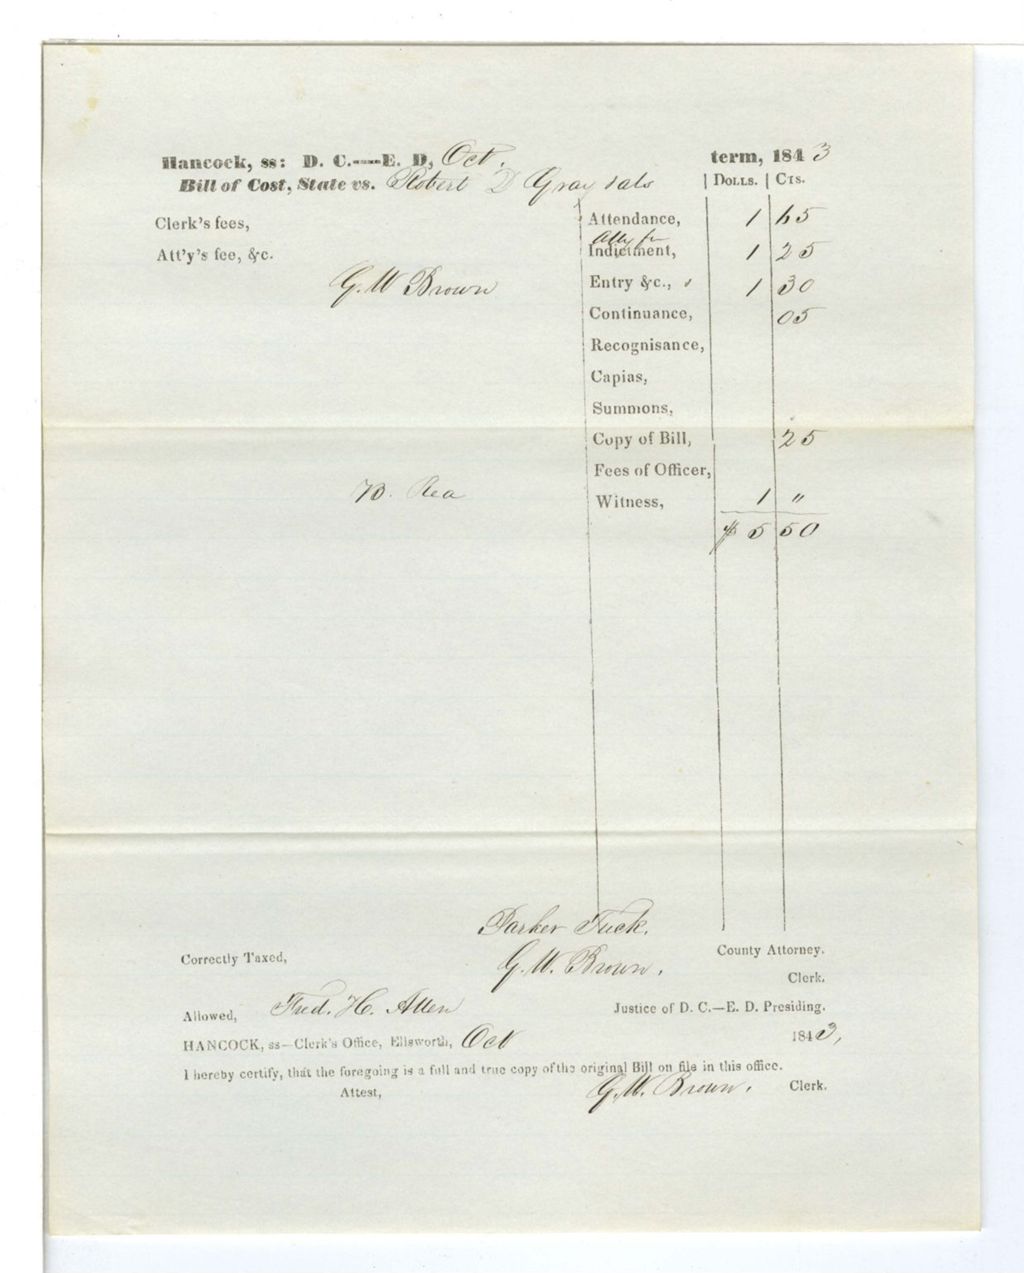 Hancock, ss: D. C.—E. D, Oct. term, 1843
Bill of Cost, State vs. Robert D Gray & als | Dolls. | Cts.
Clerk's fees, Attendance, 1 65
Att'y's fee, &c. Atty fee Indictment, 1 25
G. W Brown Entry &c., 1 30
Continuance, 05
Recognisance,
Capias,
Summons,
Copy of Bill, 25
Fees of Officer,
B. Rea Witness, 1 "
$ 5 50
Parker Tuck.
Correctly Taxed, County Attorney.
G. W. Brown. Clerk.
Allowed, Fred. H. Allen Justice of D. C.—E. D. Presiding.
HANCOCK, ss—Clerk's Office, Ellsworth, Oct 1843,
I hereby certify, that the foregoing is a full and true copy of the original Bill on file in this office.
Attest, G. W. Brown. Clerk.